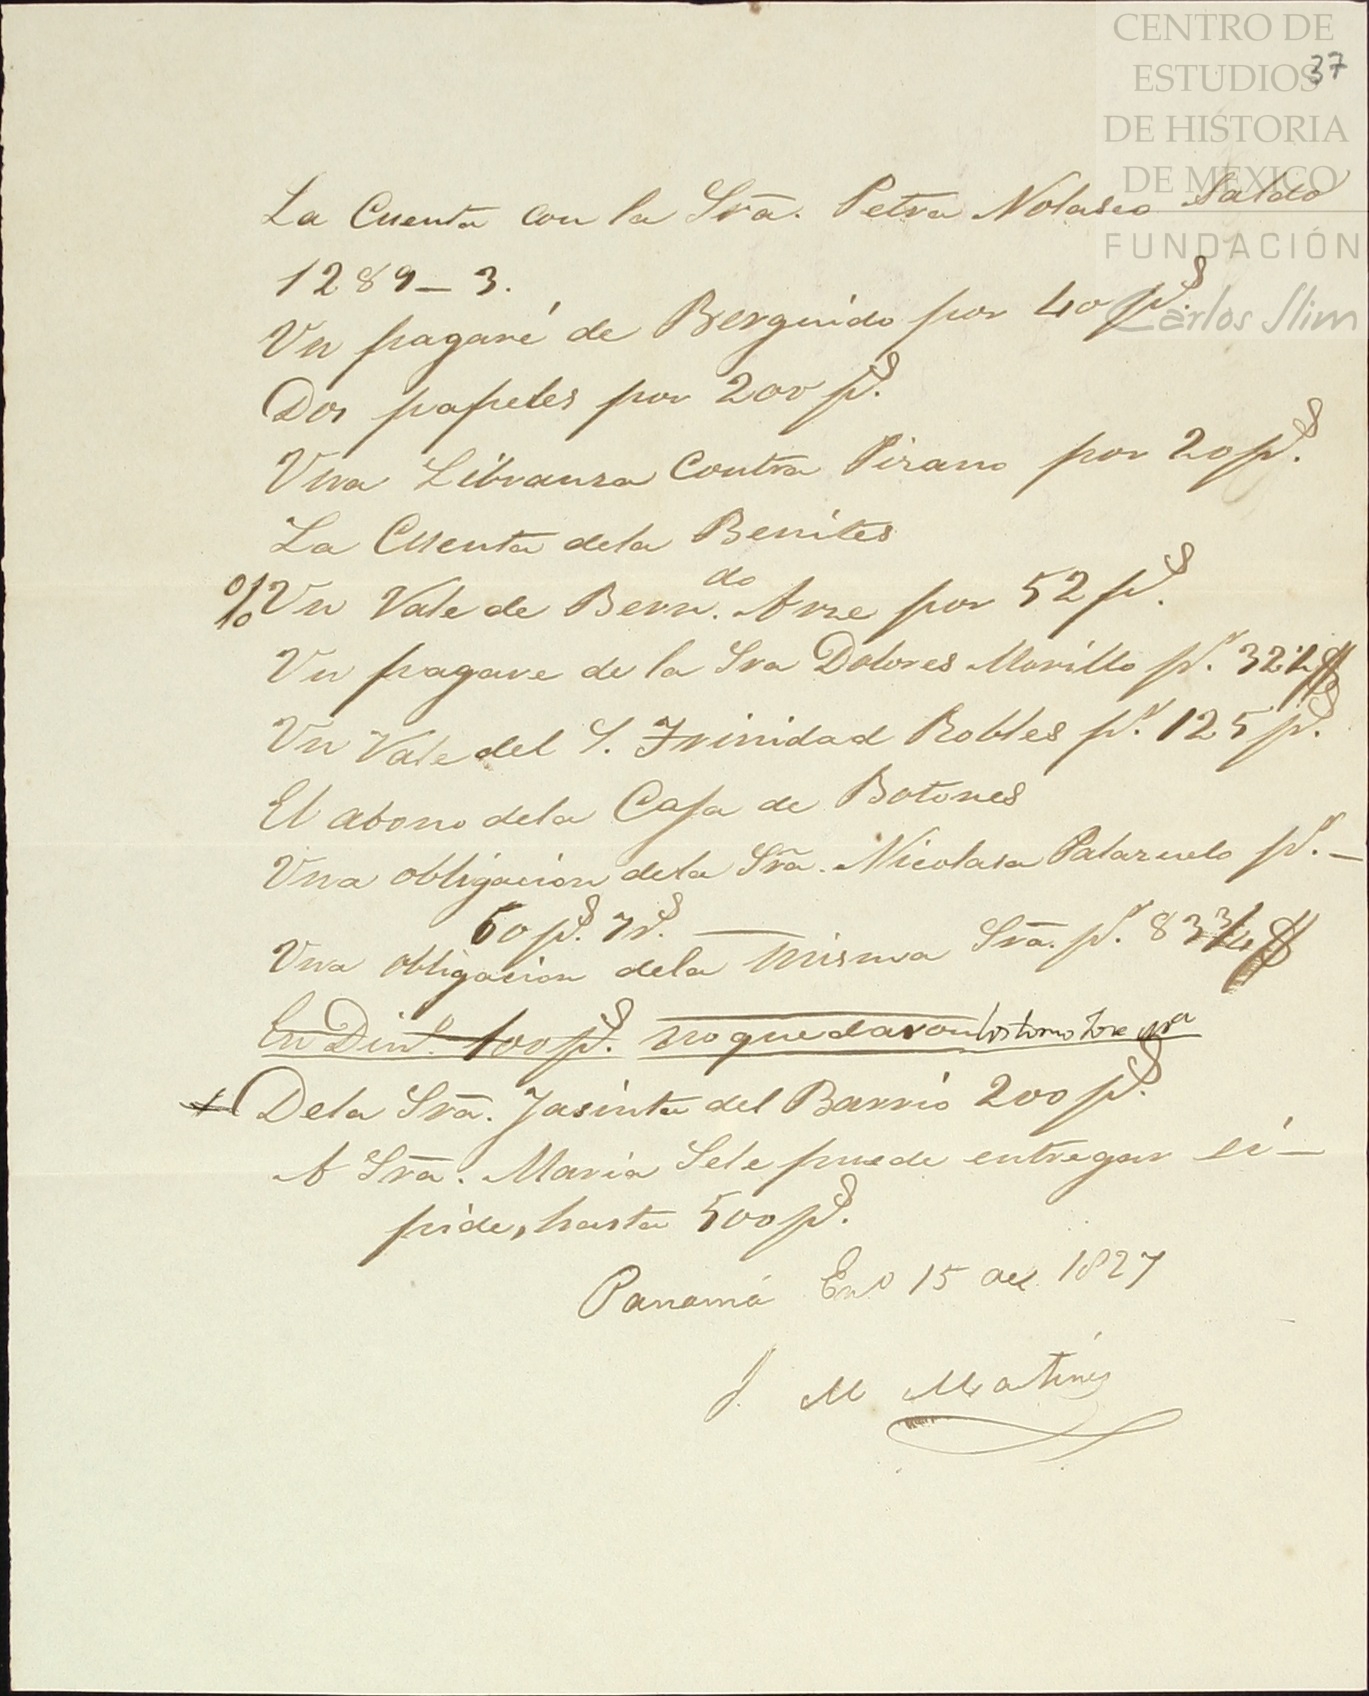 CENTRO DE
ESTUDIOS
DE HISTORIA
DE MEXICO
FUNDACIÓN
Carlos Slim
37
La Cuenta con la Srā. Petra Nolasco Saldo
1289_3.
Un pagaré de Berguido por 40 p.s
Dos papeles por 200 p.s
Una Libranza Contra Pizano por 20 p.s
La Cuenta dela Benites
% Un Vale de Bern.do Arze por 52 p.s
Un pagare de la Sra Dolores Morillo p.r 32
Un Vale del S. Trinidad Robles p.r 125 p.s
El abono dela Casa de Botones
Una obligacion dela Srā. Nicolasa Palazuelo p.r _
60 p.s 7 r.s
Una obligacion dela misma Srā. p.r 83
En Din.o 100 p.s no quedaron los tomo Jose Ma
Dela Srā. Jasinta del Barrio 200 p.s
A Srā. Maria Sele puede entregar si _
pide, hasta 500 p.s
Panamá En.o 15 de 1827
J. M Martines